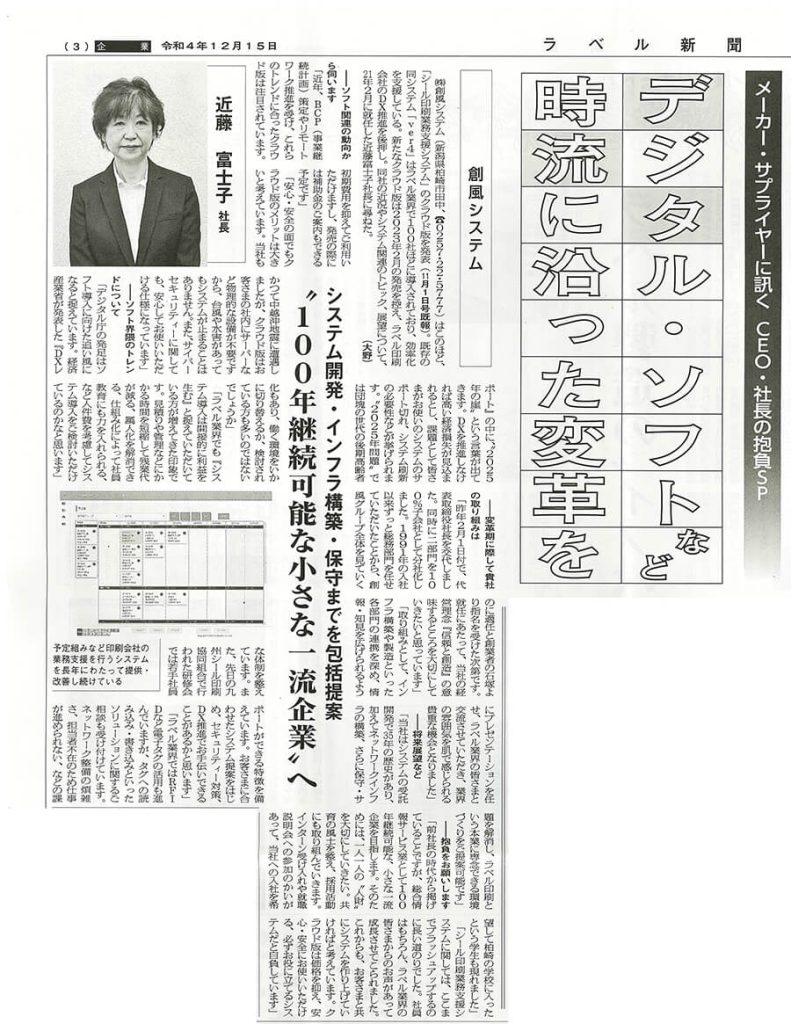 （3）企業 令和4年12月15日
ラベル新聞
メーカー・サプライヤーに訊く CEO・社長の抱負SP
デジタル・ソフトなど
時流に沿った変革を
創風システム
㈱創風システム（新潟県柏崎市田中、☎0257・22・5777）はこのほど、
「シール印刷業務支援システム」のクラウド版を発表（11月1日号既報）。既存の
同システム「ver4」はラベル業界で100社ほどに導入されており、効率化
を支援している。新たなクラウド版は2023年2月の発売を控え、ラベル印刷
会社のDX推進を後押し。同社の近況やシステム関連のトピック、展望について、
21年2月に就任した近藤富士子社長に尋ねた。
（大野）
近藤 富士子 社長
システム開発・インフラ構築・保守までを包括提案
〝100年継続可能な小さな一流企業〟へ
――ソフト関連の動向か
ら伺います
「近年、BCP（事業継
続計画）策定やリモート
ワーク推進を受け、これら
のトレンドに合ったクラウ
ド版は注目されています。
初期費用を抑えてご利用い
ただけますし、発売の際に
は補助金のご案内もできる
予定です」
「安心・安全の面でもク
ラウド版のメリットは大き
いと考えています。当社も
かつて中越沖地震に遭遇し
ましたが、クラウド版はお
客さまの社内にサーバーな
ど物理的な設備が不要です
から、台風や水害があって
もシステムが止まることは
ありません。また、サイバー
セキュリティーに関して
も、安心してお使いいただ
ける仕様になっています」
――ソフト界隈のトレン
ドについて
「デジタル庁の発足はソ
フト導入に向けた追い風に
なると捉えています。経済
産業省が発表した『DXレ
ポート』の中に、〝2025
年の崖〟という言葉が出て
きます。DXを推進しなけ
れば高い経済損失が見込ま
れるとし、課題として皆さ
まがお使いのシステムのサ
ポート切れ、システム刷新
の必要性などが挙げられま
す。〝2025年問題〟で
は団塊の世代の後期高齢者
化もあり、働く環境をいか
に切り替えるか、検討され
ている方も多いのではない
でしょうか」
「ラベル業界でも『シス
テム導入は間接的に利益を
生む』と捉えていただいて
いる方が増えてきた印象で
す。見積りや管理などにか
かる時間を短縮して残業代
が減る、属人化を解消でき
る、仕組み化によって社員
教育にも力を入れられる、
など人件費を考慮してシス
テム導入をご検討いただけ
ているのかなと思います」
――変革期に際して貴社
の取り組みは
「昨年2月1日付で、代
表取締役社長を交代しまし
た。同時に二部門を10
0％子会社として分社化し
ました。1991年の入社
以来ずっと総務部門を任せ
ていただいたことから、創
風グループ全体を見ていく
のに適任と創業者の石塚よ
り指名を受けた次第です。
就任にあたって、当社の経
営理念『信頼と創造』の意
味するところを大切にして
いきたいと思っています」
「取り組みとして、イン
フラ構築や製造といった
各部門の連携を深め、情
報・知見を広げられるよう
な体制を整え
ています。ま
た、先日の九
州シール印刷
協同組合で行
われた研修会
では若手社員
にプレゼンテーションを任
せ、ラベル業界の皆さまと
交流させていただき、業界
の雰囲気を肌で感じられる
貴重な機会となりました」
――将来展望など
「当社はシステムの受託
開発で35年の歴史があり、
加えてネットワークインフ
ラの構築、さらに保守・サ
ポートができる特徴を備
えています。お客さまに合
わせたシステム提案をはじ
め、セキュリティー対策、
DX推進でお手伝いできる
ことがあるかと思います」
「ラベル業界ではRFI
Dなど電子タグの活用も進
んでいますが、タグへの読
み込み・書き込みといった
ソリューションに関するご
相談も受け付けています。
ネットワーク整備の煩雑
さ、担当者不在のため仕事
が進められない、などの課
題を解消し、ラベル印刷と
いう本業に専念できる環境
づくりをご提案可能です」
――抱負をお願いします
「前社長の時代から掲げ
ていることですが、総合情
報サービス業として100
年継続可能な、小さな一流
企業を目指します。そのた
めには、一人一人の〝人財〟
を大切にしていきたい。共
育の風土を整え、採用活動
にも取り組んでいきます。
インターン受け入れや就職
説明会への参加のかいが
あって、当社への入社を希
望して柏崎の学校に入った
という学生も現れました」
「シール印刷業務支援シ
ステムに関しては、ここま
でブラッシュアップするの
に長い道のりでした。社員
はもちろん、ラベル業界の
皆さまからのお声があって
成長させてこられました。
これからも、お客さまと共
にシステムを作り上げてい
ければと考えています。ク
ラウド版は価格を抑え、安
心・安全にお使いいただけ
る、必ずお役に立てるシス
テムだと自負しています」
予定組みなど印刷会社の
業務支援を行うシステム
を長年にわたって提供・
改善し続けている